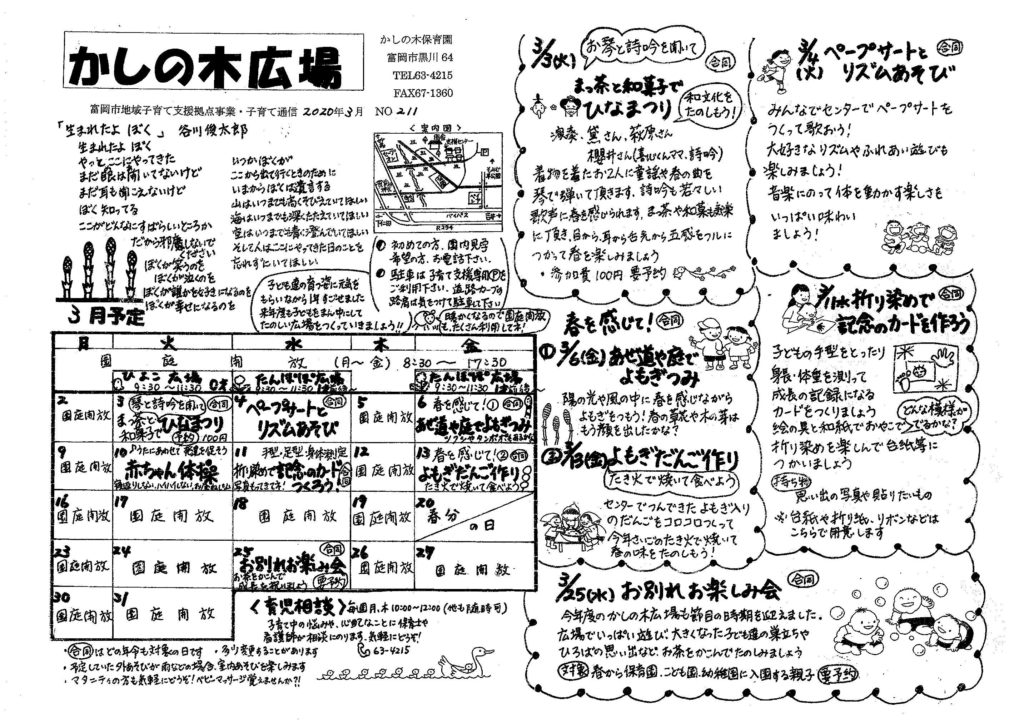 かしの木広場
かしの木保育園
富岡市黒川64
TEL63-4215
FAX67-1360
富岡市地域子育て支援拠点事業・子育て通信 2020年3月 NO 211
「生まれたよ ぼく」 谷川俊太郎
生まれたよ ぼく
やっとここにやってきた
まだ眼は開いてないけど
まだ耳も聞こえないけど
ぼく知ってる
ここがどんなにすばらしいところか
だから邪魔しないで
ください
ぼくが笑うのを
ぼくが泣くのを
ぼくが誰かを好きになるのを
ぼくが幸せになるのを
いつかぼくが
ここから出て行くときのために
いまからぼくは遺言する
山はいつまでも高くそびえていてほしい
海はいつまでも深くたたえていてほしい
空はいつまでも青く澄んでいてほしい
そして人はここにやってきた日のことを
忘れずにいてほしい
<案内図>
バイパス
R254
● 初めての方、園内見学
希望の方、お電話下さい。
● 駐車は子育て支援専用Ⓟを
ご利用下さい。道路カーブの
路肩は気をつけて駐車して下さい
子ども達の育つ姿に元気を
もらいながら1年すごせました
来年度も子どもをまん中にして
たのしい広場をつくっていきましょう!!
暖かくなるので園庭開放
たくさん利用して下さい!
3月予定
月 火 水 木 金
園庭開放 (月〜金) 8:30〜17:30
ひよこ広場
9:30〜11:30 0才
たんぽぽ広場
たんぽぽ広場
2 園庭開放
3 琴と詩吟を聞いて 合同
まっ茶と和菓子で ひなまつり
予約 100円
4 ペープサートと
リズムあそび
5 園庭開放
6 春を感じて!① 合同
あぜ道や庭でよもぎつみ
9 園庭開放
10 うたにあわせて 発達を促そう
赤ちゃん体操
11 手型・足型・身体測定
折り染めで記念のカード
つくろう!
合同
12 園庭開放
13 春を感じて!② 合同
よもぎだんご作り
たき火で焼いて食べよう
16 園庭開放
17 園庭開放
18 園庭開放
19 園庭開放
20 春分の日
23 園庭開放
24 園庭開放
25 合同
お別れお楽しみ会
お茶をかこんで
成長を祝いましょう 要予約
26 園庭開放
27 園庭開放
30 園庭開放
31 園庭開放
<育児相談> 毎週月、木 10:00〜12:00 (他も随時可)
子育て中の悩みや、心配なことに保育士や
看護師が相談にのります。気軽にどうぞ!
63-4215
・合同はどの年令も対象の日です ・多少変更することがあります
・予定していた外あそびが雨などの場合、室内あそびを楽しみます
・マタニティの方も気軽にどうぞ!ベビーマッサージ覚えませんか?!
3/3(火) お琴と詩吟を聞いて 合同
まっ茶と和菓子で
ひなまつり
和文化を
たのしもう!
演奏、黛さん、萩原さん
櫻井さん
着物を着たお2人に童謡や春の曲を
琴で弾いて頂きます。詩吟も若々しい
歌声に春を感じられます。まっ茶や和菓子も気楽
に頂き、目から、耳から台先から五感をフルに
つかって春を楽しみましょう
・参加費100円 要予約
3/4(火) ペープサートと
リズムあそび 合同
みんなでセンターでペープサートを
つくって歌おう!
大好きなリズムやふれあい遊びも
楽しみましょう!
音楽にのって体を動かす楽しさを
いっぱい味わい
ましょう!
春を感じて! 合同
① 3/6(金) あぜ道や庭で
よもぎつみ
陽の光や風の中に春を感じながら
よもぎをつもう!春の草花や木の芽は
もう顔を出したかな?
② 3/13(金) よもぎだんご作り
たき火で焼いて食べよう
センターでつんできたよもぎ入り
のだんごをコロコロつくって
今年さいごのたき火で焼いて
春の味をたのしもう!
3/11(水) 折り染めで 合同
記念のカードを作ろう
子どもの手型をとったり
身長・体重を測って
成長の記録になる
カードをつくりましょう
どんな模様が
でるかな?
絵の具と和紙でおやこで
折り染めを楽しんで台紙等に
つかいましょう
持ち物
思い出の写真や貼りたいもの
※台紙や折り紙、リボンなどは
こちらで用意します
3/25(水) お別れお楽しみ会 合同
今年度のかしの木広場も節目の時期を迎えました。
広場でいっぱい遊び、大きくなった子ども達の巣立ちや
ひろばの思い出など、お茶をかこんでたのしみましょう
対象 春から保育園、こども園、幼稚園に入園する親子 要予約